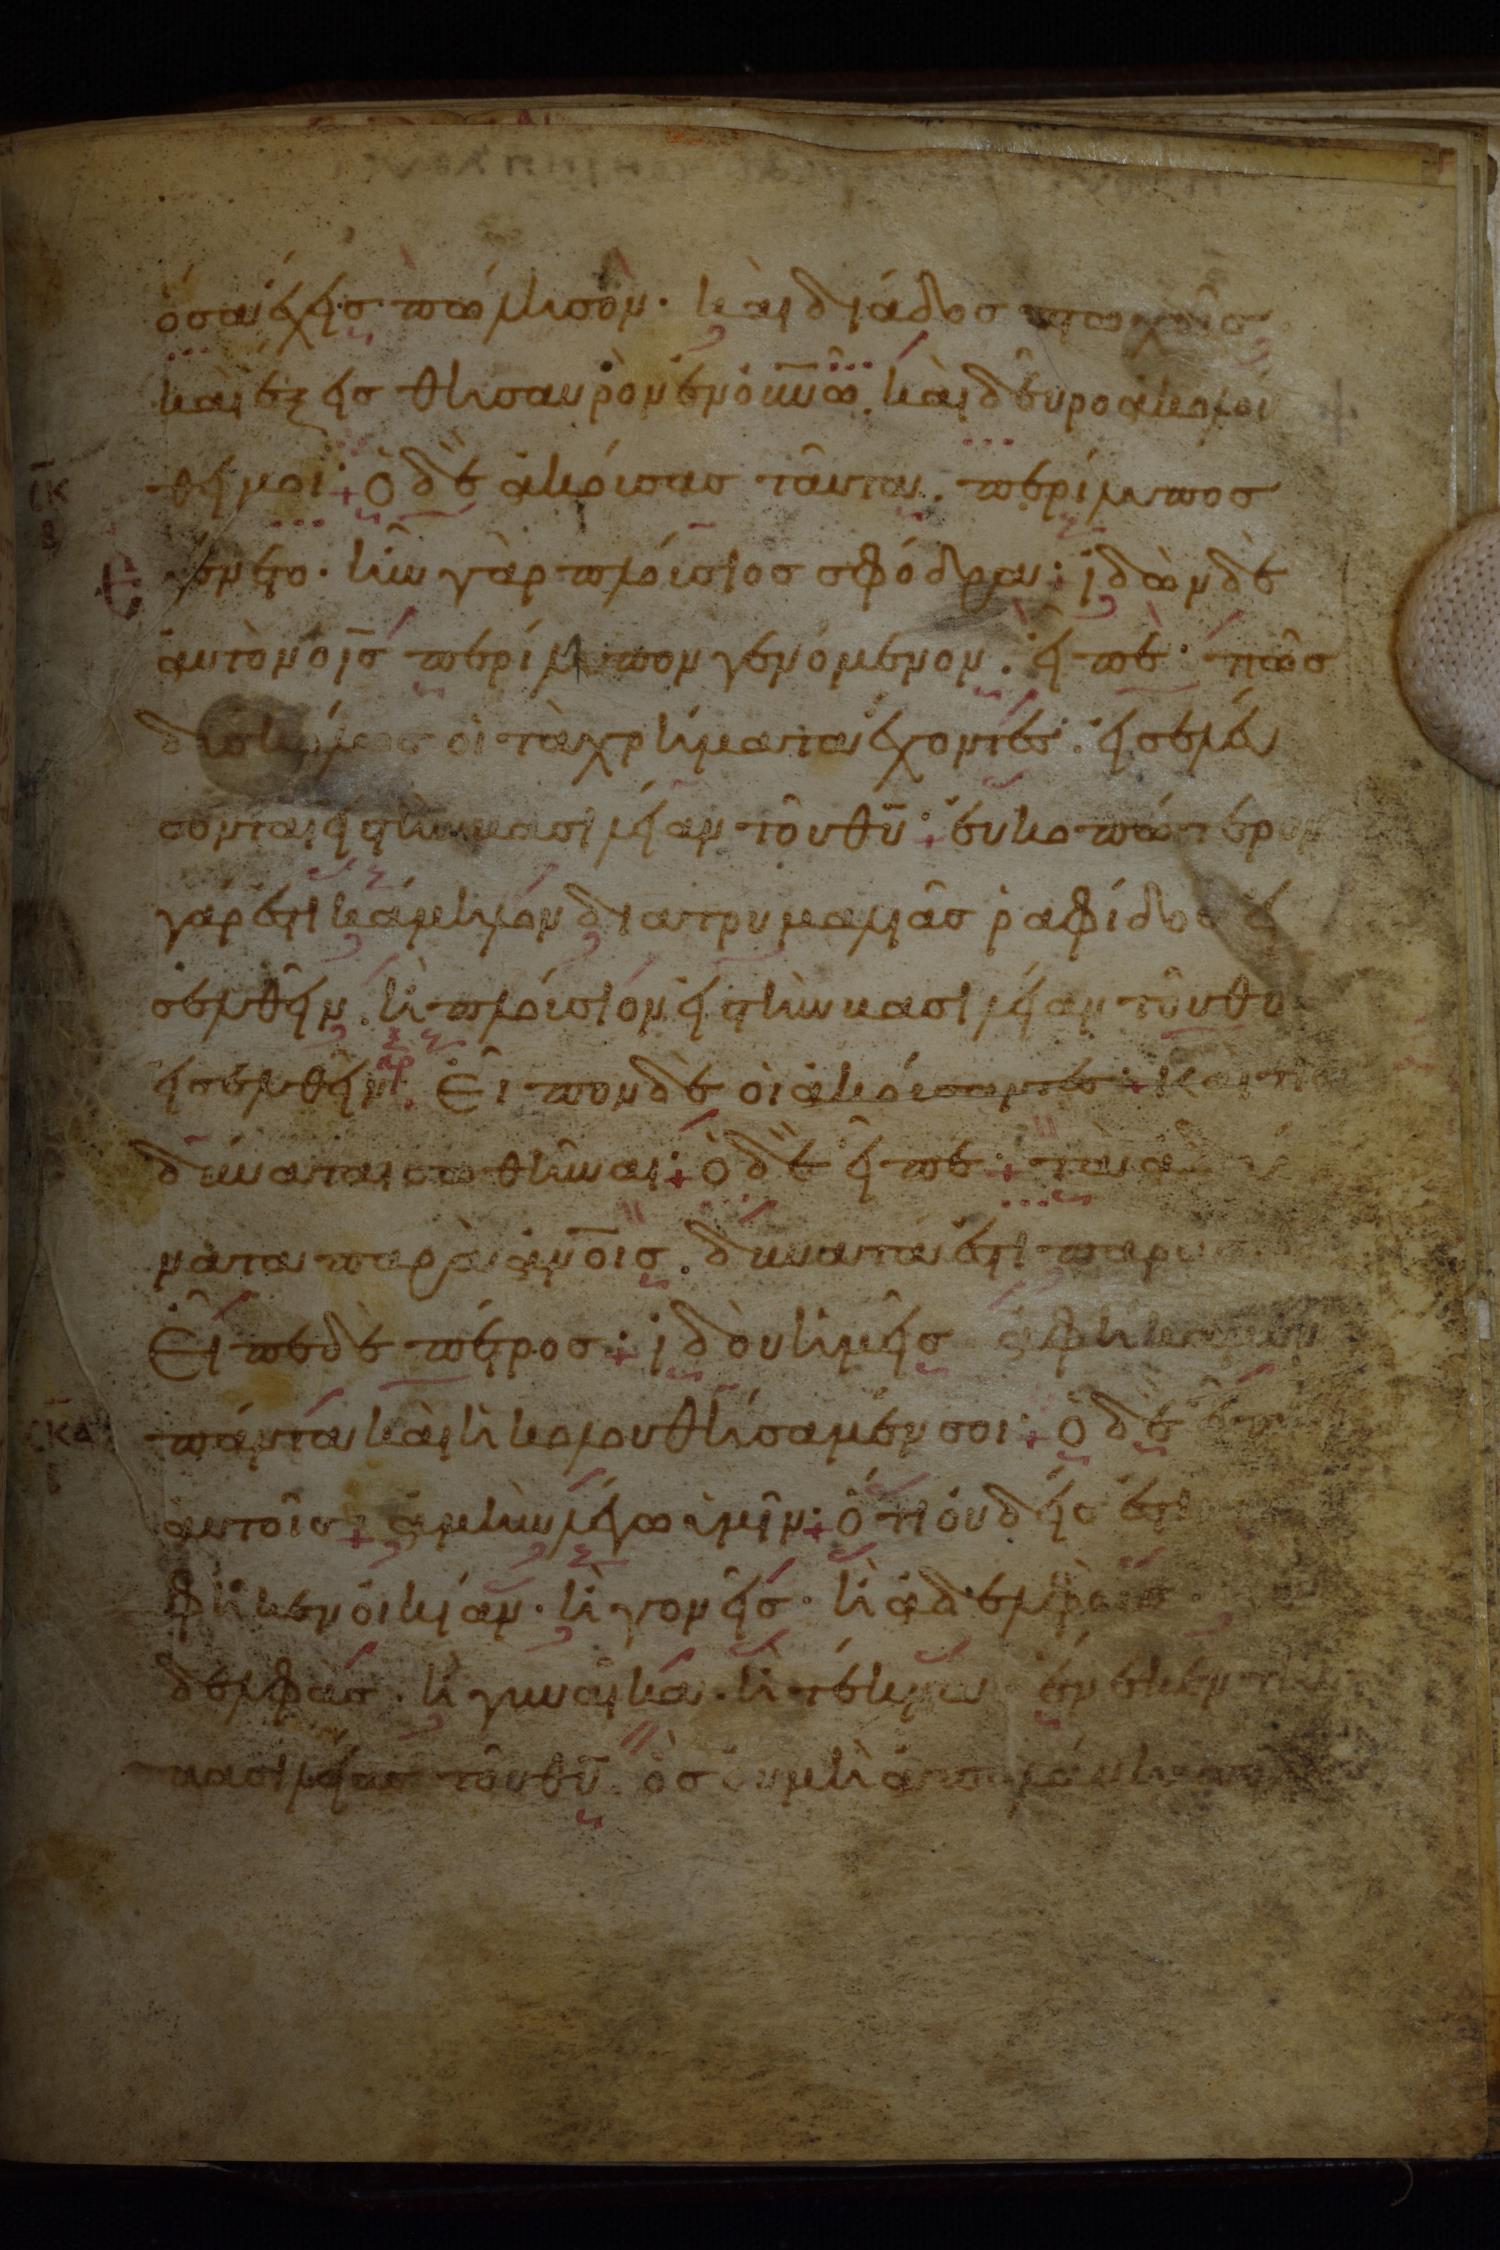 ὅσα ἔχεις πώλησον· καὶ διάδος πτωχοῖς
καὶ ἕξεις θησαυρὸν ἐν ὀυνῶ. καὶ δεῦρο ἀκολού
θει μοι· ὁ δὲ ἀκούσας ταῦτα. περίλυπος
ἐγένετο· ἦν γὰρ πλούσιος σφόδρα· ἰδὼν δὲ
αὐτὸν ὁ ις περίλυπον γενόμενον. εἶπε· πῶς
δυσκόλως οἱ τὰ χρήματα ἔχοντες· εἰσελεύ
σονται εἰς τὴν βασιλείαν τοῦ θυ· εὐκοπώτερον
γάρ ἐστι κάμηλον διὰ τρυμαλιᾶς ραφίδος εἰ
σελθεῖν. ἢ πλούσιον εἰς τὴν βασιλείαν τοῦ θυ
εἰσελθεῖν· Εἶπον δὲ οἱ ἀκούσαντες· καὶ τίς
δύναται σωθῆναι· ὁ δὲ εἶπε· τὰ ἀδύ
νατα παρὰ ἀνοις. δυνατά ἐστι παρὰ
Εἶπε δὲ πέτρος· ἰδοὺ ἡμεῖς ἀφήκαμεν
πάντα καὶ ἠκολουθήσαμέν σοι· ὁ δὲ εἶπεν
αὐτοῖς· ἀμὴν λέγω ὑμῖν· ὅτι οὐδείς ἐστιν
φῆκεν οἰκίαν· ἢ γονεῖς· ἢ ἀδελφοὺς
δελφὰς· ἢ γυναῖκα· ἢ τέκνα ἕνεκεν τῆς
βασιλείας τοῦ θυ. ὃς οὐ μὴ ἀπολάβη